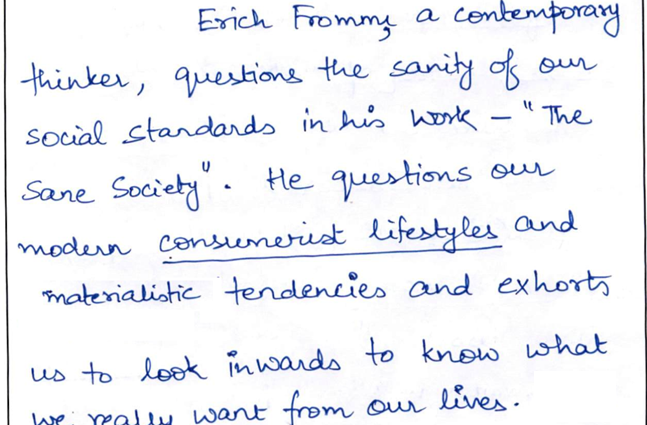 Erich Fromm, a contemporary
thinker, questions the sanity of our
social standards in his work – "The
Sane Society". He questions our
modern consumerist lifestyles and
materialistic tendencies and exhorts
us to look inwards to know what
we really want from our lives.